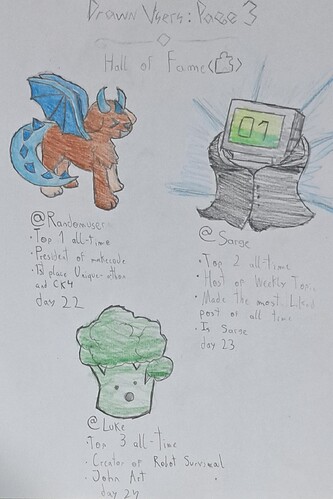 Drawn Users: Page 3
Hall of Fame
01
@Randomuser
• Top 1 all-time
• President of makecode
• 1st place Unique-athon
and CK4
day 22
@Sarge
• Top 2 all-time
• Host of Weekly Topic
• Made the most liked
post of all time
• Is Sarge
day 23
@Luke
• Top 3 all-time
• Creator of Robot Survival
• John Art
day 24